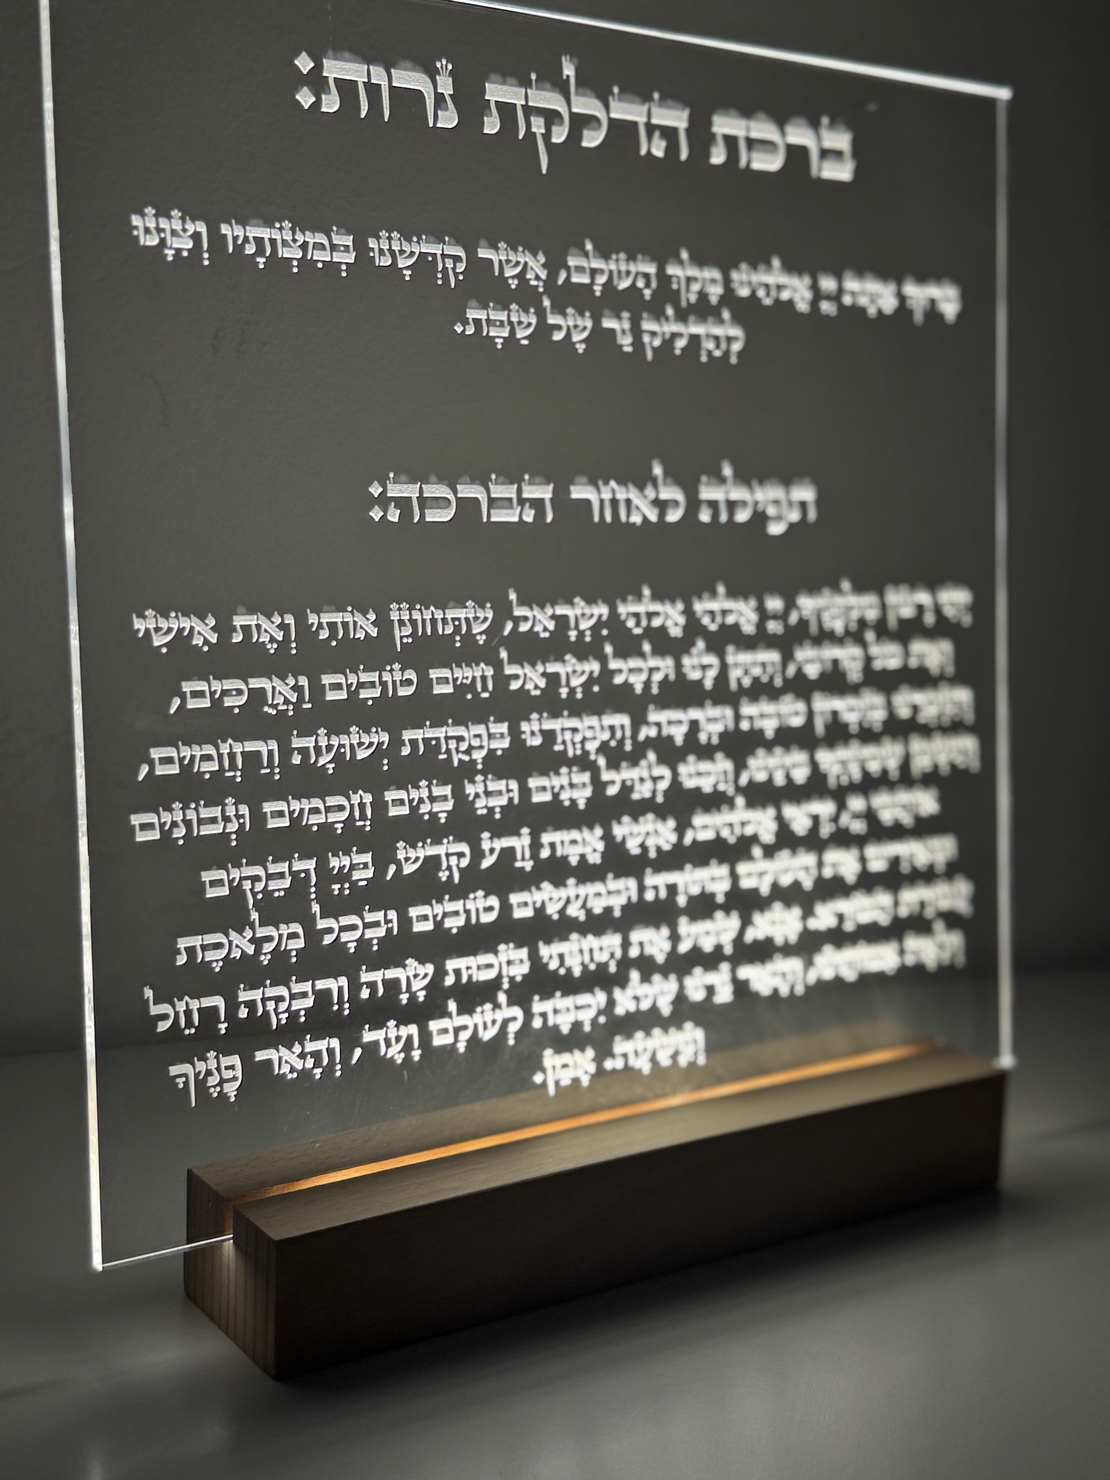 ברכת הדלקת נרות:
בָּרוּךְ אַתָּה יְיָ אֱלֹהֵינוּ מֶלֶךְ הָעוֹלָם, אֲשֶׁר קִדְּשָׁנוּ בְּמִצְוֹתָיו וְצִוָּנוּ
לְהַדְלִיק נֵר שֶׁל שַׁבָּת.
תפילה לאחר הברכה:
יְהִי רָצוֹן מִלְּפָנֶיךָ, יְיָ אֱלֹהַי אֱלֹהֵי יִשְׂרָאֵל, שֶׁתְּחוֹנֵן אוֹתִי וְאֶת אִישִׁי
וְאֶת כל קְרוֹבַי, וְתִתֵּן לָנוּ וּלְכָל יִשְׂרָאֵל חַיִּים טוֹבִים וַאֲרֻכִּים,
וְתִזְכְּרֵנוּ בְּזִכְרוֹן טוֹבָה וּבְרָכָה, וְתִפְקְדֵנוּ בִּפְקֻדַּת יְשׁוּעָה וְרַחֲמִים,
וְתַשְׁכֵּן שְׁכִינָתְךָ בֵּינֵינוּ, וְזַכֵּנוּ לְגַדֵּל בָּנִים וּבְנֵי בָנִים חֲכָמִים וּנְבוֹנִים
אוֹהֲבֵי יְיָ, יִרְאֵי אֱלֹהִים, אַנְשֵׁי אֱמֶת זֶרַע קֹדֶשׁ, בַּייָ דְּבֵקִים
וּמְאִירִים אֶת הָעוֹלָם בְּתוֹרָה וּבְמַעֲשִׂים טוֹבִים וּבְכָל מְלֶאכֶת
עֲבוֹדַת הַבּוֹרֵא. אָנָּא, שְׁמַע אֶת תְּחִנָּתִי בִּזְכוּת שָׂרָה וְרִבְקָה רָחֵל
וְלֵאָה אִמּוֹתֵינוּ, וְהָאֵר נֵרֵנוּ שֶׁלֹּא יִכְבֶּה לְעוֹלָם וָעֶד, וְהָאֵר פָּנֶיךָ
וְנִוָּשֵׁעָה. אָמֵן.